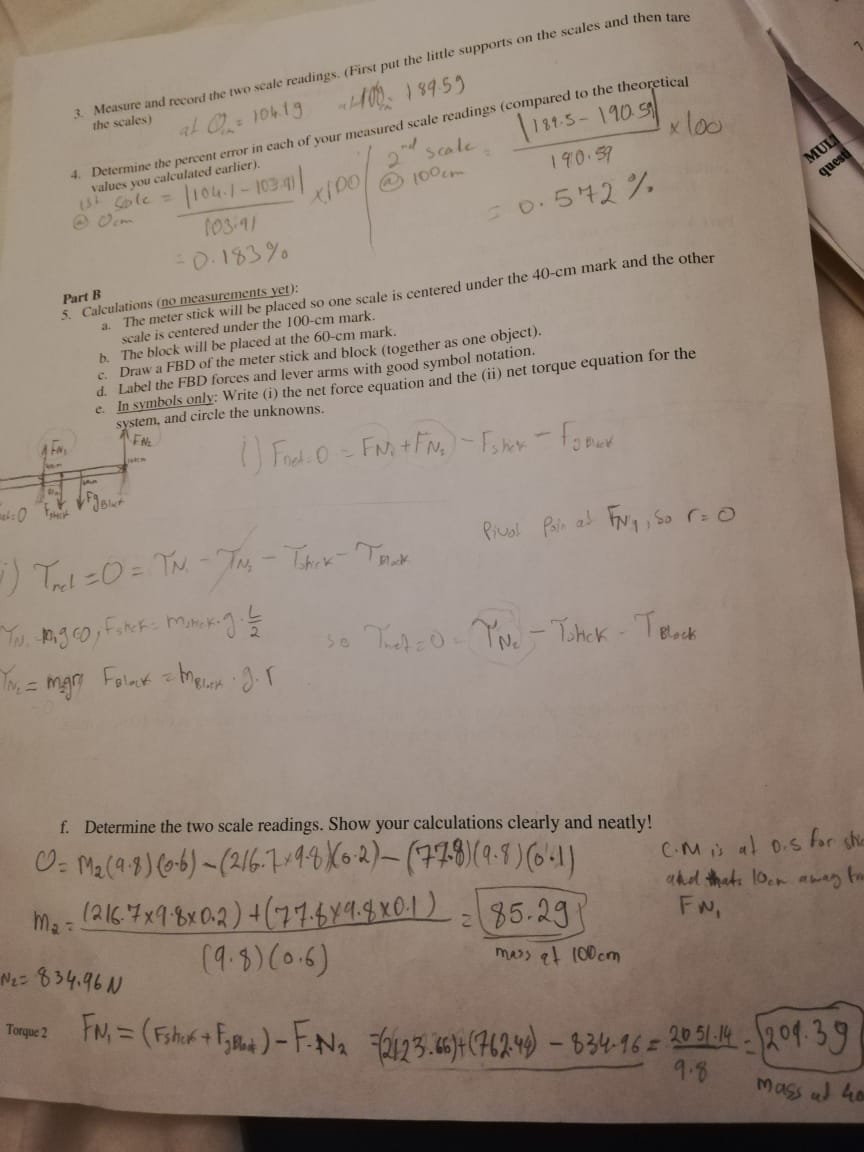 3. Measure and record the two scale readings. (First put the little supports on the scales and then tare
the scales)
at 0cm = 104.1g at 100cm: 189.5g
4. Determine the percent error in each of your measured scale readings (compared to the theoretical
values you calculated earlier).
1st Scale @ 0cm = |104.1-103.91| / 103.91 x100
= 0.183%
2nd scale @ 100cm = |189.5-190.59| / 190.59 x100
= 0.572%
Part B
5. Calculations (no measurements yet):
a. The meter stick will be placed so one scale is centered under the 40-cm mark and the other
scale is centered under the 100-cm mark.
b. The block will be placed at the 60-cm mark.
c. Draw a FBD of the meter stick and block (together as one object).
d. Label the FBD forces and lever arms with good symbol notation.
e. In symbols only: Write (i) the net force equation and the (ii) net torque equation for the
system, and circle the unknowns.
FN1
FN2
Fstick
Fg Block
i) Fnet=0 = FN1 + FN2 - Fstick - Fg Block
Pivot Poin at FN1, so r=0
i) Tnet = 0 = TN1 - TN2 - Tstick - TBlock
TN1 = m1g(0), Fstick = mstick·g·L/2
so Tnet=0 = TN2 - Tstick - TBlock
TN2 = m2gr, FBlock = mBlock·g·r
f. Determine the two scale readings. Show your calculations clearly and neatly!
0= M2(9.8)(0.6) - (216.7x9.8)(0.2) - (77.8)(9.8)(0.1)
C.M is at 0.5 for
and thats 10cm away
FN1
M2 = (216.7x9.8x0.2) + (77.8x9.8x0.1) / (9.8)(0.6) = 85.29
mass at 100cm
N2 = 834.96 N
Torque 2
FN1 = (Fstick + FgBlock) - FN2 = (2123.66)+(762.44) - 834.96 = 2051.14 / 9.8 = 209.39
mass at
MUL
quest